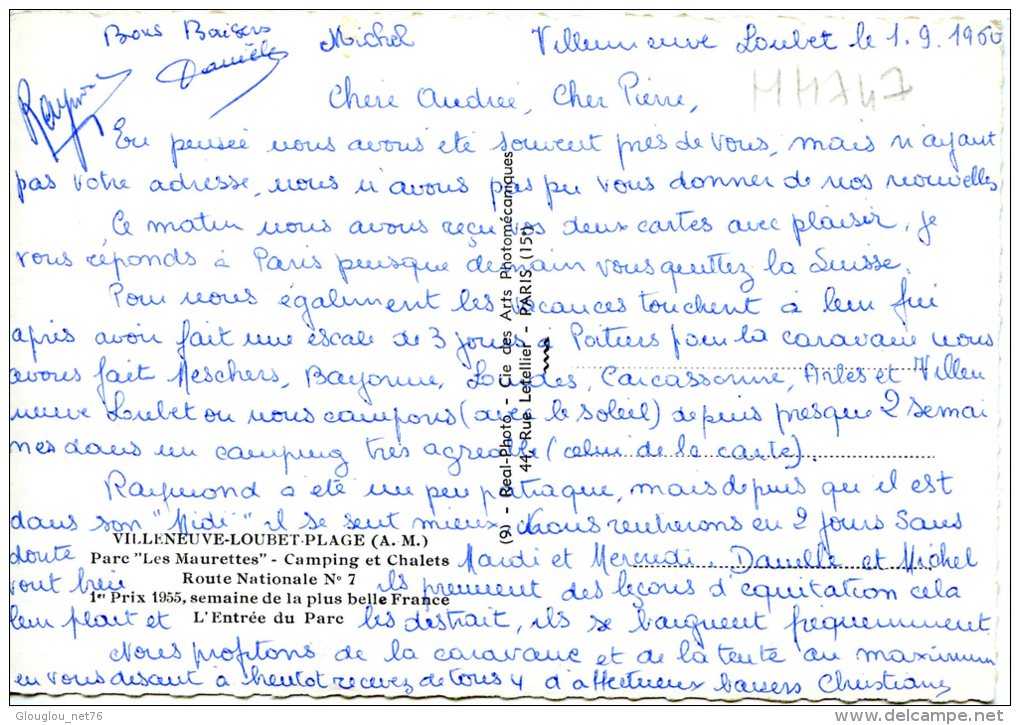 Bons Baisers
Danièle
Michel
Raymond
Villeuneuve Loubet le 1.9.1960
MM747
Chère Andrée, Cher Pierre,
En pensée nous avons été souvent près de vous, mais n'ayant
pas votre adresse, nous n'avons pas pu vous donner de nos nouvelles
Ce matin nous avons reçu vos deux cartes avec plaisir, je
vous réponds à Paris puisque demain vous quittez la Suisse.
Pour nous également les vacances touchent à leur fin
après avoir fait une escale de 3 jours à Poitiers pour la caravane nous
avons fait Meschers, Bayonne, Lourdes, Carcassonne, Arles et Villeu
neuve Loubet ou nous campons (avec le soleil) depuis presque 2 semai
nes dans un camping très agréable (celui de la carte).
Raymond a été un peu patraque, mais depuis qu'il est
dans son "Midi" il se sent mieux. Nous rentrerons en 2 jours sans
doute Mardi et Mercredi. Danielle et Michel
vont bien ils prennent des leçons d'équitation cela
leur plait et les distrait, ils se baignent fréquemment
Nous profitons de la caravane et de la tente au maximum
en vous disant à bientot recevez de tous 4 d'affectueux baisers Christiane
VILLENEUVE-LOUBET-PLAGE (A. M.)
Parc "Les Maurettes" - Camping et Chalets
Route Nationale N° 7
1er Prix 1955, semaine de la plus belle France
L'Entrée du Parc
(9) - Real-Photo. - Cie des Arts Photomécaniques
44, Rue Letellier - PARIS (15e)
Glouglou_net76
www.delcampe.net